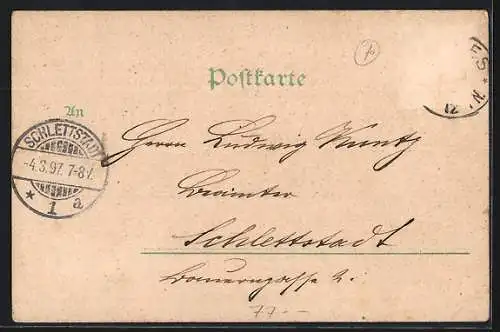 Postkarte
An
SCHLETTSTADT
-4.3.97. 7-8V.
* 1 a
Herrn Ludwig Kuntz
Beamter
Schlettstadt
2.
77.-
12